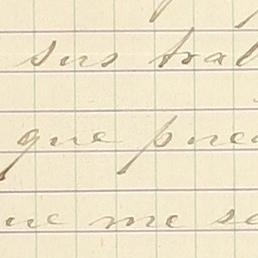 sus trab
que pued
ue me se